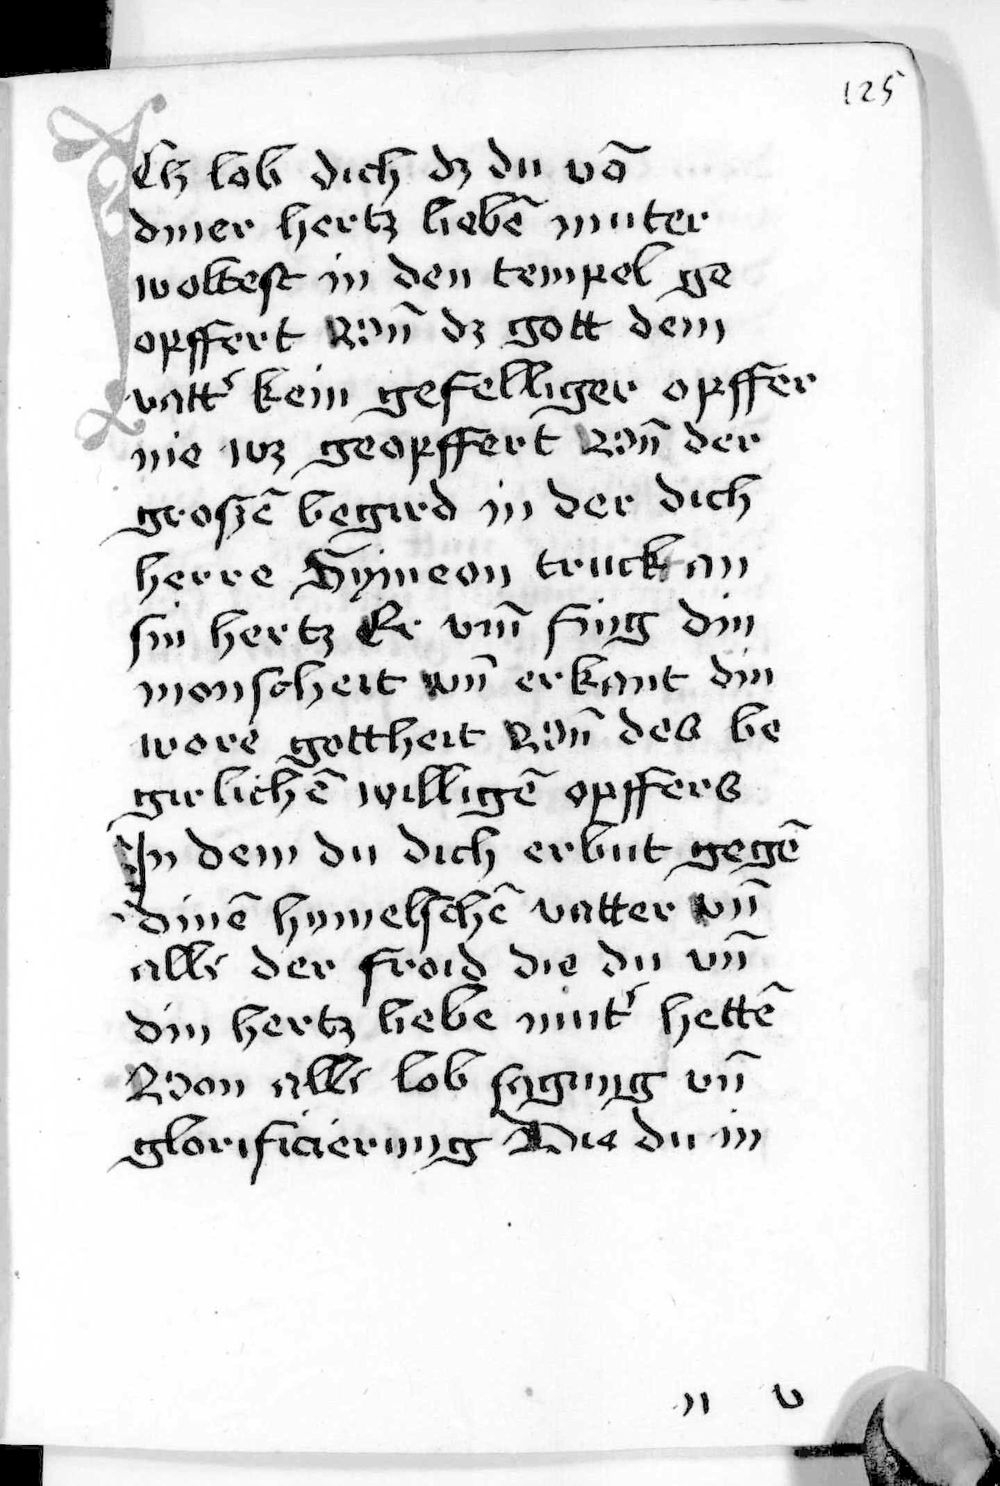 125
Ich lob dich dz du vō
diner hertz liebē muter
woltest in den tempel ge
opffert Vn̄ dz gott dem
vatt᷑ kein gefelliger opffer
nie wz geopffert Vn̄ der
groszē begird in der dich
herre Symeon truckt an
sin hertz Er vm̄ fing din
monscheit vn̄ erkant din
wore gottheit Vn̄ des be
girlichē willigē opffers
In dem du dich erbut gegē
dinē hymelschē vatter vn̄
alle der froid die du vn̄
din hertz liebe mut᷑ hettē
Von alle lob sagung vn̄
glorificierung Die du in
n v